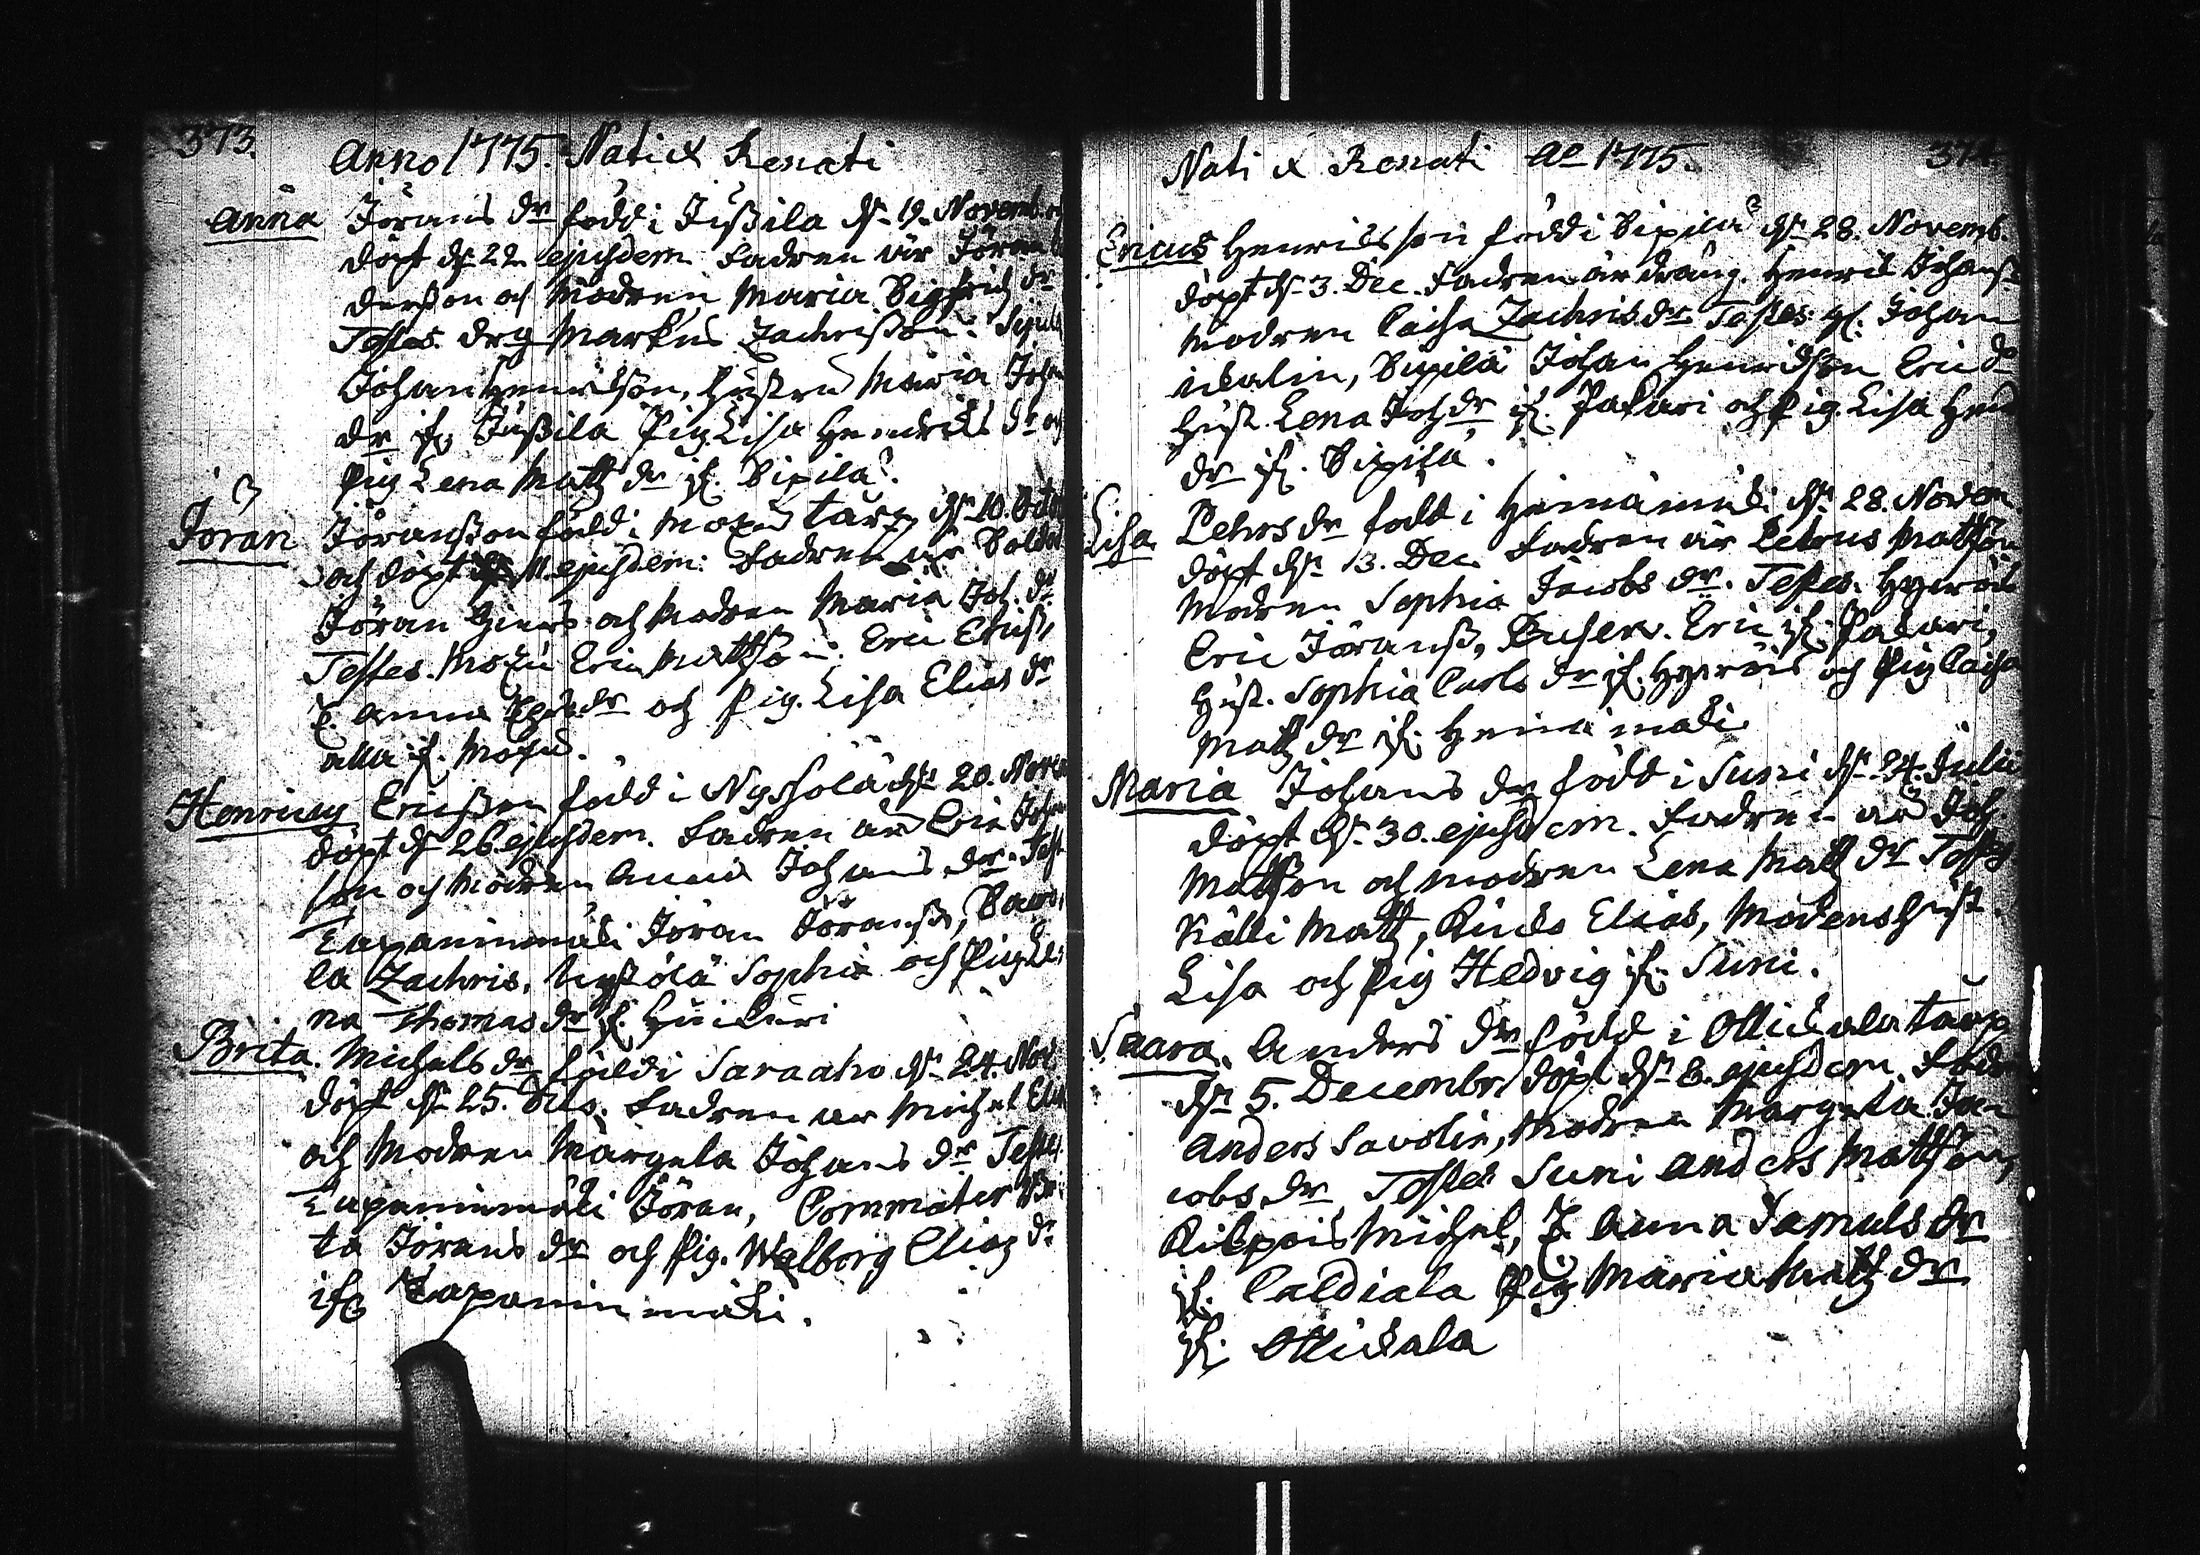 373.
Anno 1775. Nati & Renati
Anna Jörans dr född i Jußila d. 19. Novemb. och
döpt d. 22 ejusdem. Fadren är Jöran
derßon och Modren Maria Sigfrids dr
Testes. drg Markus Zachrisson.
Johan Henrichson, hustru Maria Joh
dr if. Jußila Pig. Lisa Hendrichs dr och
Pig Lena Matz dr if. Sipilä.
Jöran Jöransson född i Moxu tårp d. 10. Octob
och döpt 11. ejusdem. Fadren är Soldat
Jöran och Modren Maria Joh. dr
Testes. Moxu Eric Mattsson. Eric Erichss,
Anna dr och Pig. Lisa Elias dr
alla if. Moxu.
Henricus Ericsson född i Nygholä d. 20. Nove
döpt d 26 ejusdem. Fadren är Eric Joh
son och Modren Anna Johans dr. Test
Tapaninmäki Jöran Jöranss,
la Zachris, Sophia och Pig He
na Thomas dr if. Huikuri
Brita. Michels dr född i Saraaho d. 24. Nov
döpt d. 25. dito. Fadren är Michel Eli
och Modren Margeta Johans dr Testes
Tapaninmäki Jöran, Commater Bri
ta Jörans dr och Pig. Walborg Elias dr
if. Tapaninmäki.
Nati & Renati Ao 1775.
374.
Ericus Henrichsson född i Sipilä d. 28. Novemb.
döpt d. 3. Dec. Fadren är dräng. Henrich Johanss
Modren Caisa Zachris dr Testes Johan
Sipilä Johan Henrichson Eric do
hust. Lena Joh dr if. Pakari och Pig. Lisa Hen
dr if. Sipilä.
Lisa Pehrs dr född i Heinämäki d. 28. Novem
döpt d. 3. Dec. Fadren är Petrus Mattson
Modren Sophia Jacobs dr. Testes. Hyyröis
Eric Jöranss, Eric if. Pakari,
Hust. Sophia Carls dr if. Hyyröis och Pig Caisa
Matz dr if. Heinämäki
Maria Johans dr född i Suni d. 24. Julii
döpt d. 30. ejusdem. Fadren är Joh.
Mattson och modren Lena Matz dr Testes
Källi Matz, Elias, Modrens hust.
Lisa och Pig Hedvig if. Suni.
Saara. Anders dr född i Ollickala tårp
d. 5. Decembr döpt d. 8. ejusdem. Fadr
Anders Savolin, Modren Margeta Ja
cobs dr Testes Suni Anders Mattson,
Kilpois Michel, Anna Samuels dr
if. Caldiala Pig Maria Matz dr
if. Ollickala